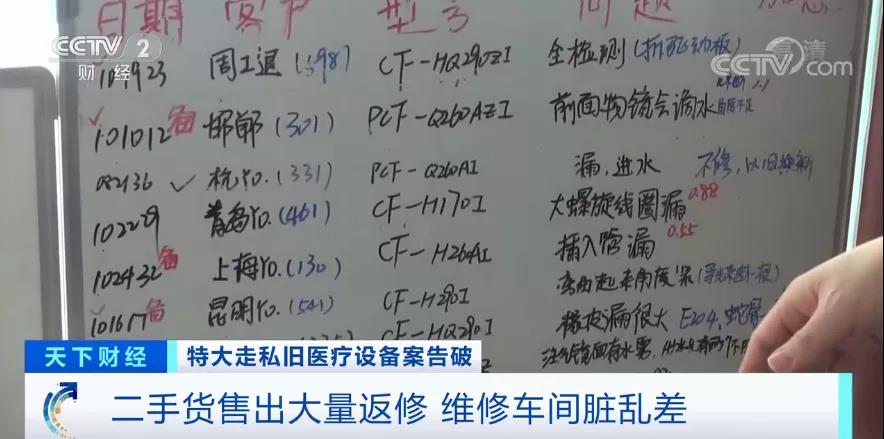 日期 客户 型号 问题
CCTV 2 财经
CCTV 高清 com
101923 周工退 (398) CF-HQ290ZI 全检测(拆配动板)
101012 备 邯郸 (301) PCF-Q260AZI 前面物镜会滴水
082436 杭Yo.(331) PCF-Q260AI 漏,进水 不修,以旧换新
102229 青岛Yo.(461) CF-H170I 大螺旋线圈漏 0.88
102432 备 上海Yo.(130) CF-H260AI 插入管漏 0.55
101617 备 昆明Yo.(541) CF-H290I 弯曲起来角度紧
HQ290I 橡皮漏很大 E204,蛇骨
天下财经 特大走私旧医疗设备案告破
二手货售出大量返修 维修车间脏乱差